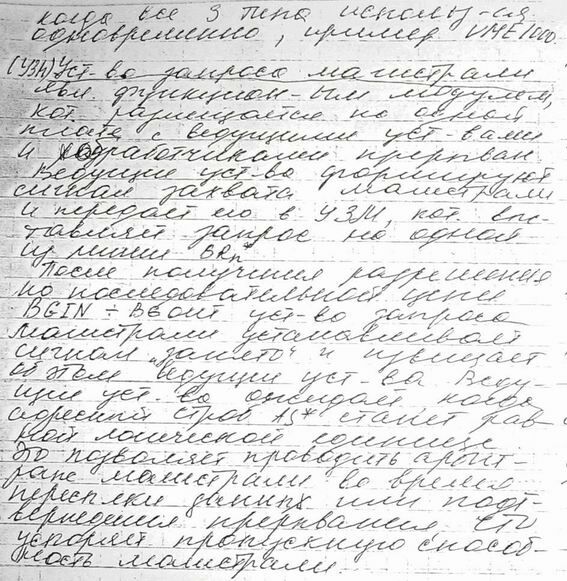 когда все 3 типа использу-ся
одновременно, пример VME1000.
(УЗМ) Уст-во запроса магистрали
явл. функцион-ым модулем,
кот. размещается на одной
плате с ведущими уст-вами
и обработчиками прерыван.
Ведущие уст-во формирует
сигнал захвата магистрали
и передает его в УЗМ, кот. выс-
тавляет запрос на одной
из линий BRn*
После получения разрешения
по последовательной цепи
BGIN ÷ BGOUT уст-во запроса
магистрали устанавливает
сигнал "занято" и извещает
об этом ведущии уст-ва. Веду-
щие уст-во ожидает, когда
адресный строб AS* станет рав-
ной логической единице.
Это позволяет проводить арбит-
раж магистрали во время
пересылки данных или подт-
верждения прерывания. Что
ускоряет пропускную способ-
ность магистрали.